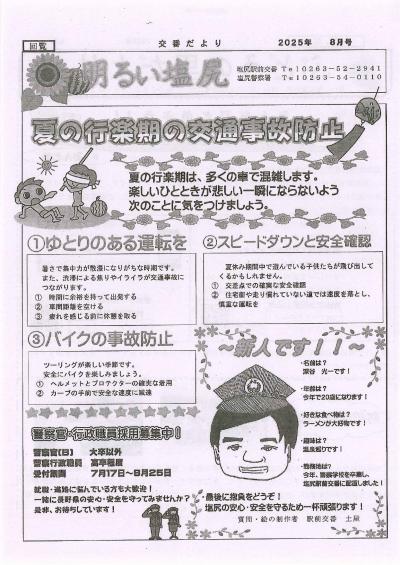 回覧
交番だより
2025年 8月号
明るい塩尻
塩尻駅前交番 Tel0263-52-2941
塩尻警察署 Tel0263-54-0110
夏の行楽期の交通事故防止
夏の行楽期は、多くの車で混雑します。
楽しいひとときが悲しい一瞬にならないよう
次のことに気をつけましょう。
①ゆとりのある運転を
暑さで集中力が散漫になりがちな時期です。
また、渋滞による焦りやイライラが交通事故に
つながります。
① 時間に余裕を持って出発する
② 車間距離を空ける
③ 疲れを感じる前に休憩を取る
②スピードダウンと安全確認
夏休み期間中で遊んでいる子供たちが飛び出して
くるかもしれません。
① 交差点での確実な安全確認
② 住宅街や走り慣れていない道では速度を落とし、
慎重な運転を
③バイクの事故防止
ツーリングが楽しい季節です。
安全にバイクを楽しみましょう。
① ヘルメットとプロテクターの確実な着用
② カーブの手前で安全な速度に減速
警察官・行政職員採用募集中！
警察官(B) 大卒以外
警察行政職員 高卒程度
受付期間 7月17日～8月25日
就職・進路に悩んでいる方も大歓迎！
一緒に長野県の安心・安全を守ってみませんか？
是非、お待ちしています！
～新人です！！～
・名前は？
深谷 光一です！
・年齢は？
今年で20歳になります！
・好きな食べ物は？
ラーメンが大好物です！
・趣味は？
温泉巡りです！
・勤務地は？
今年、警察学校を卒業し、
塩尻駅前交番に配属しました！
・最後に抱負をどうぞ！
塩尻の安心・安全を守るため一杯頑張ります！
質問・絵の制作者 駅前交番 土屋